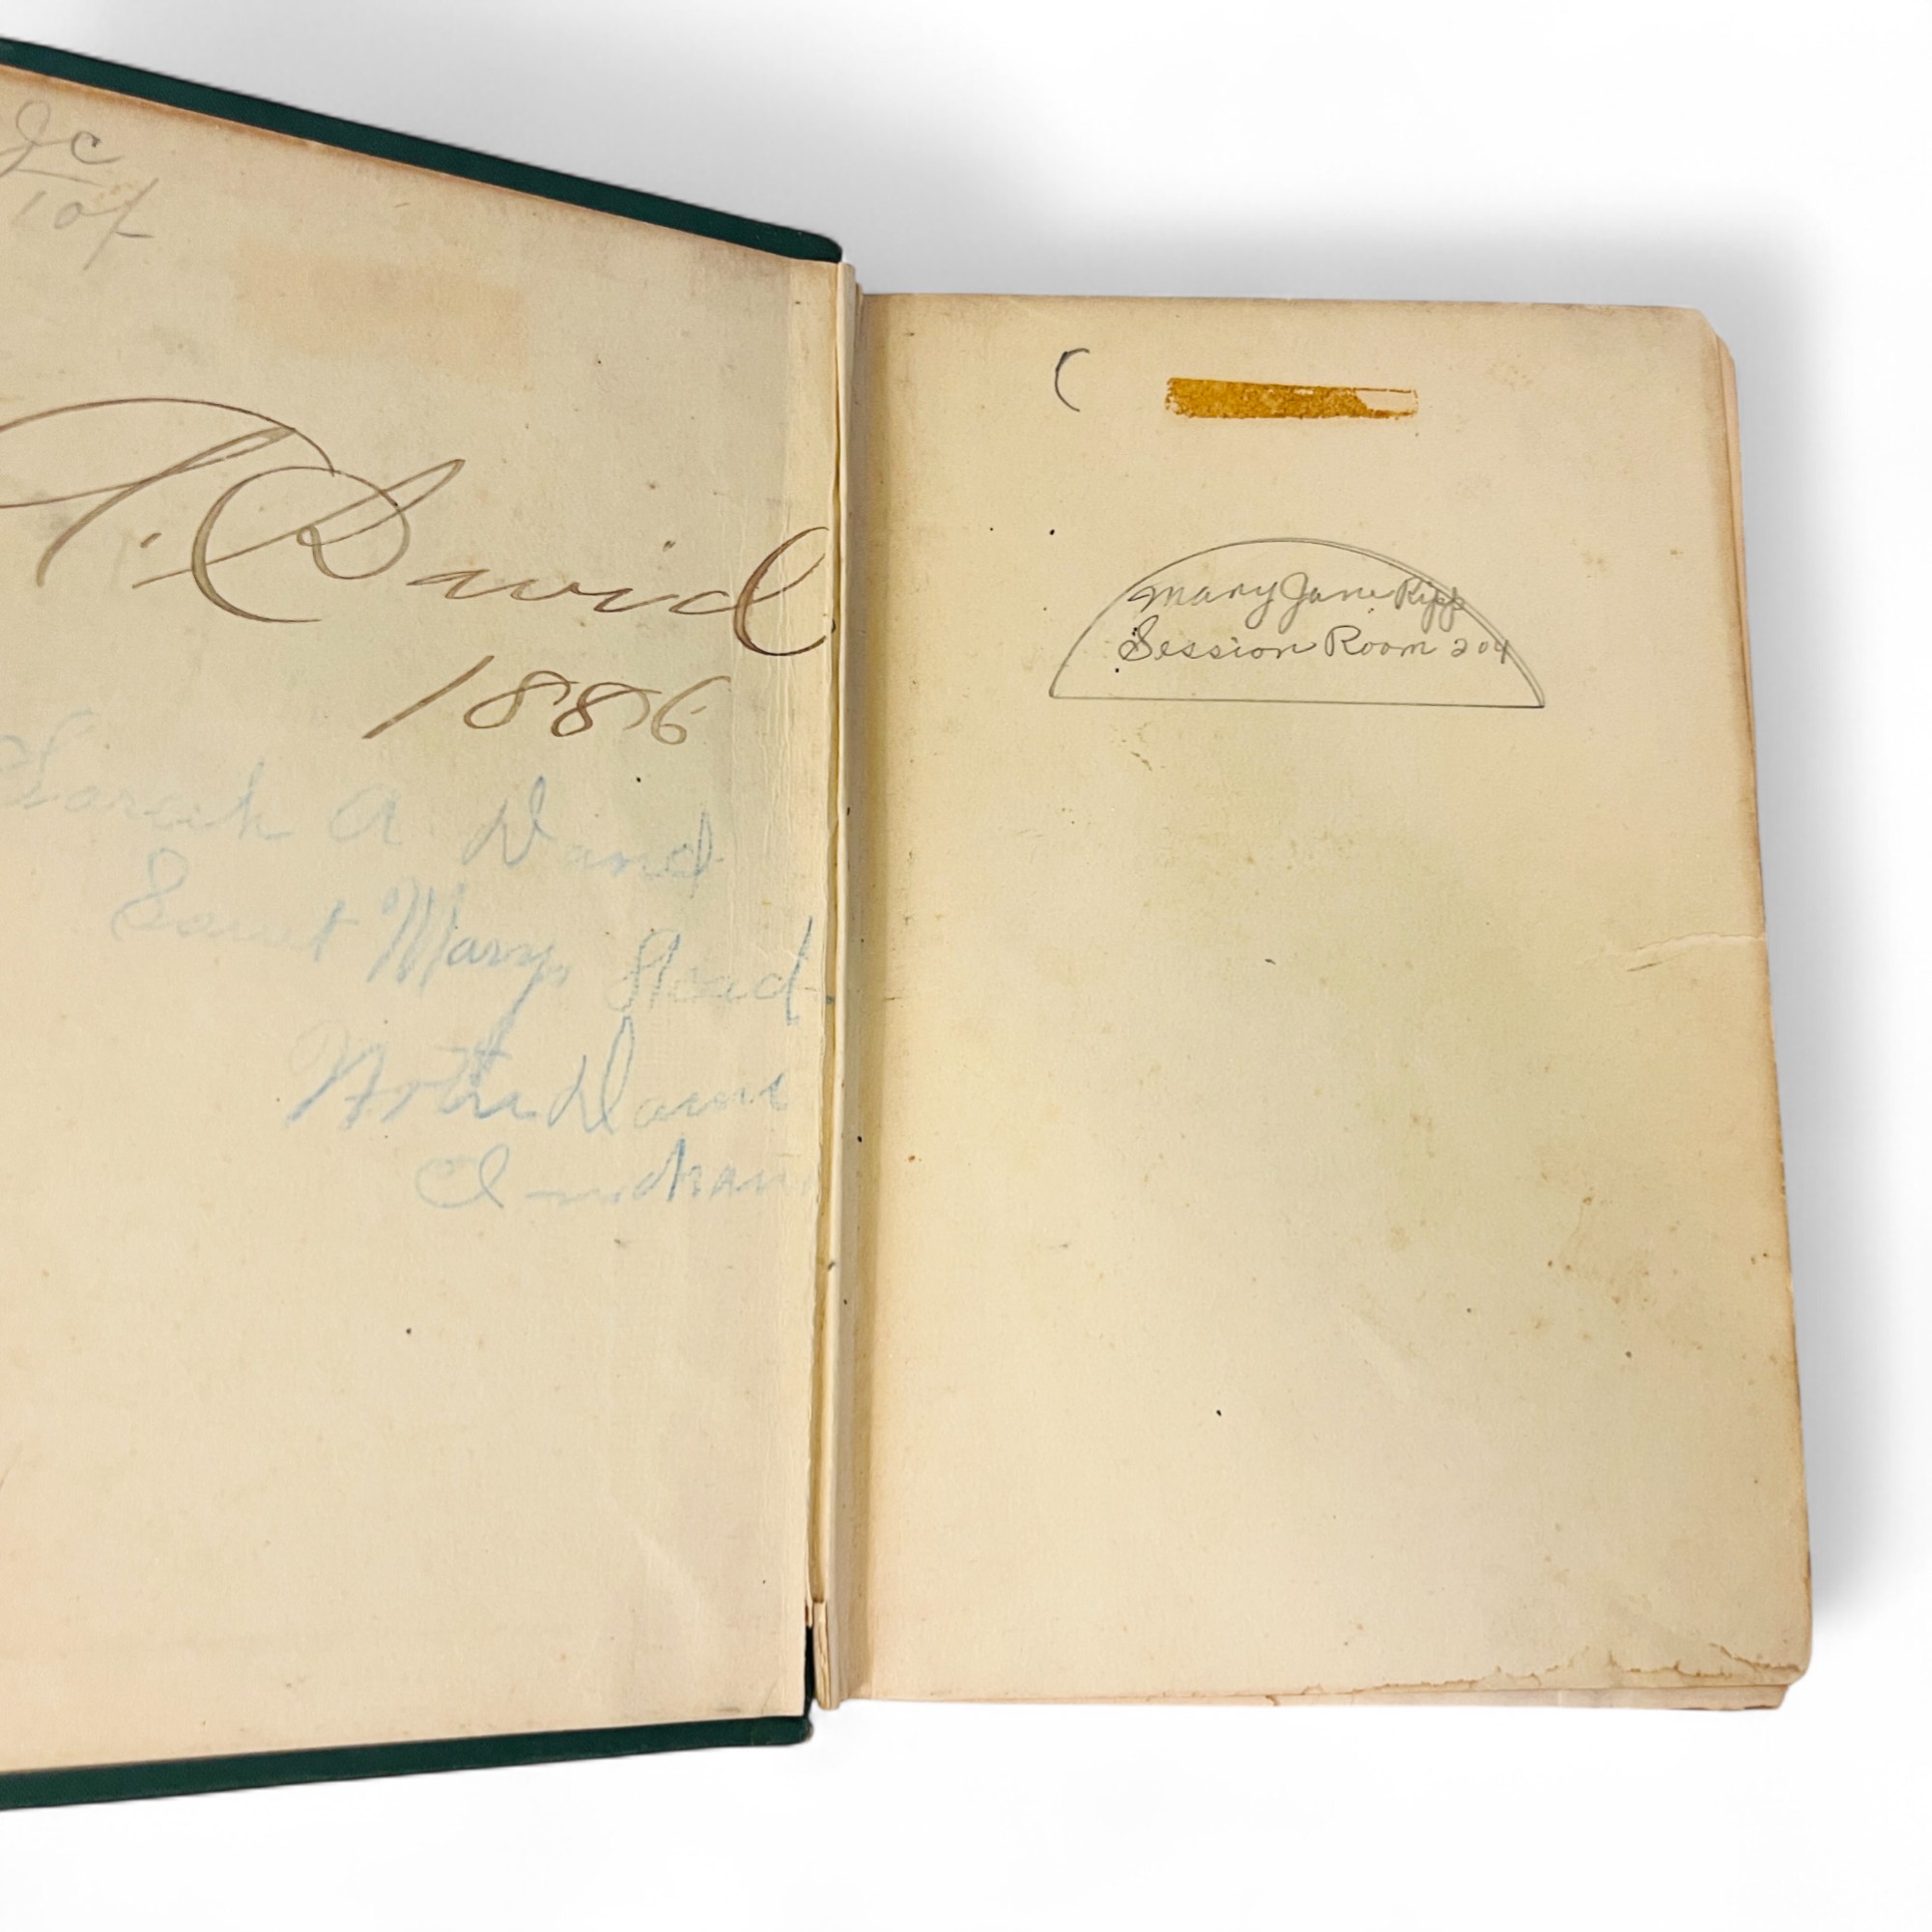 Jc
T. David
1886
Sarah A David
Saint Marys Acad
Notre Dame
Indiana
Mary Jane Ripp
Session Room 204